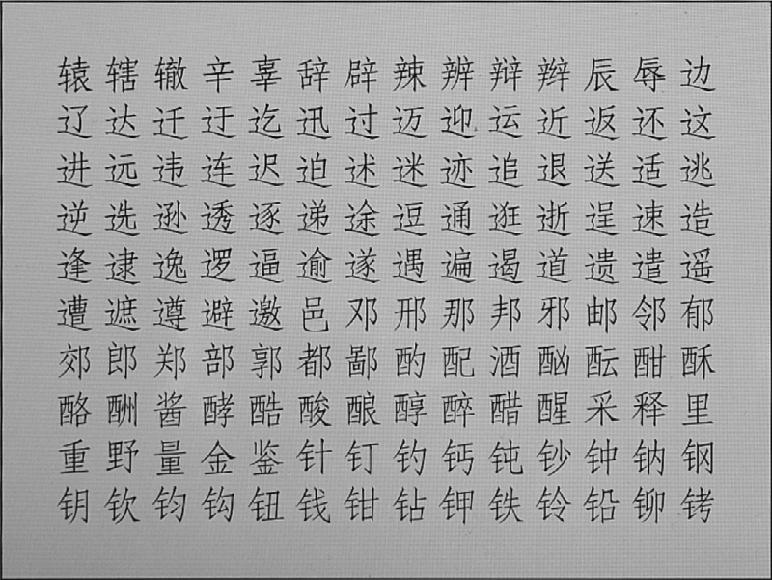 辕辖辙辛辜辞辟辣辨辩辫辰辱边
辽达迁迂迄迅过迈迎运近返还这
进远违连迟迫述迷迹追退送适逃
逆选逊透逐递途逗通逛逝逞速造
逢逮逸逻逼逾遂遇遍遏道遗遣遥
遭遮遵避邀邑邓邢那邦邪邮邻郁
郊郎郑部郭都鄙酌配酒酗酝酣酥
酪酬酱酵酷酸酿醇醉醋醒采释里
重野量金鉴针钉钓钙钝钞钟钠钢
钥钦钧钩钮钱钳钻钾铁铃铅铆铐